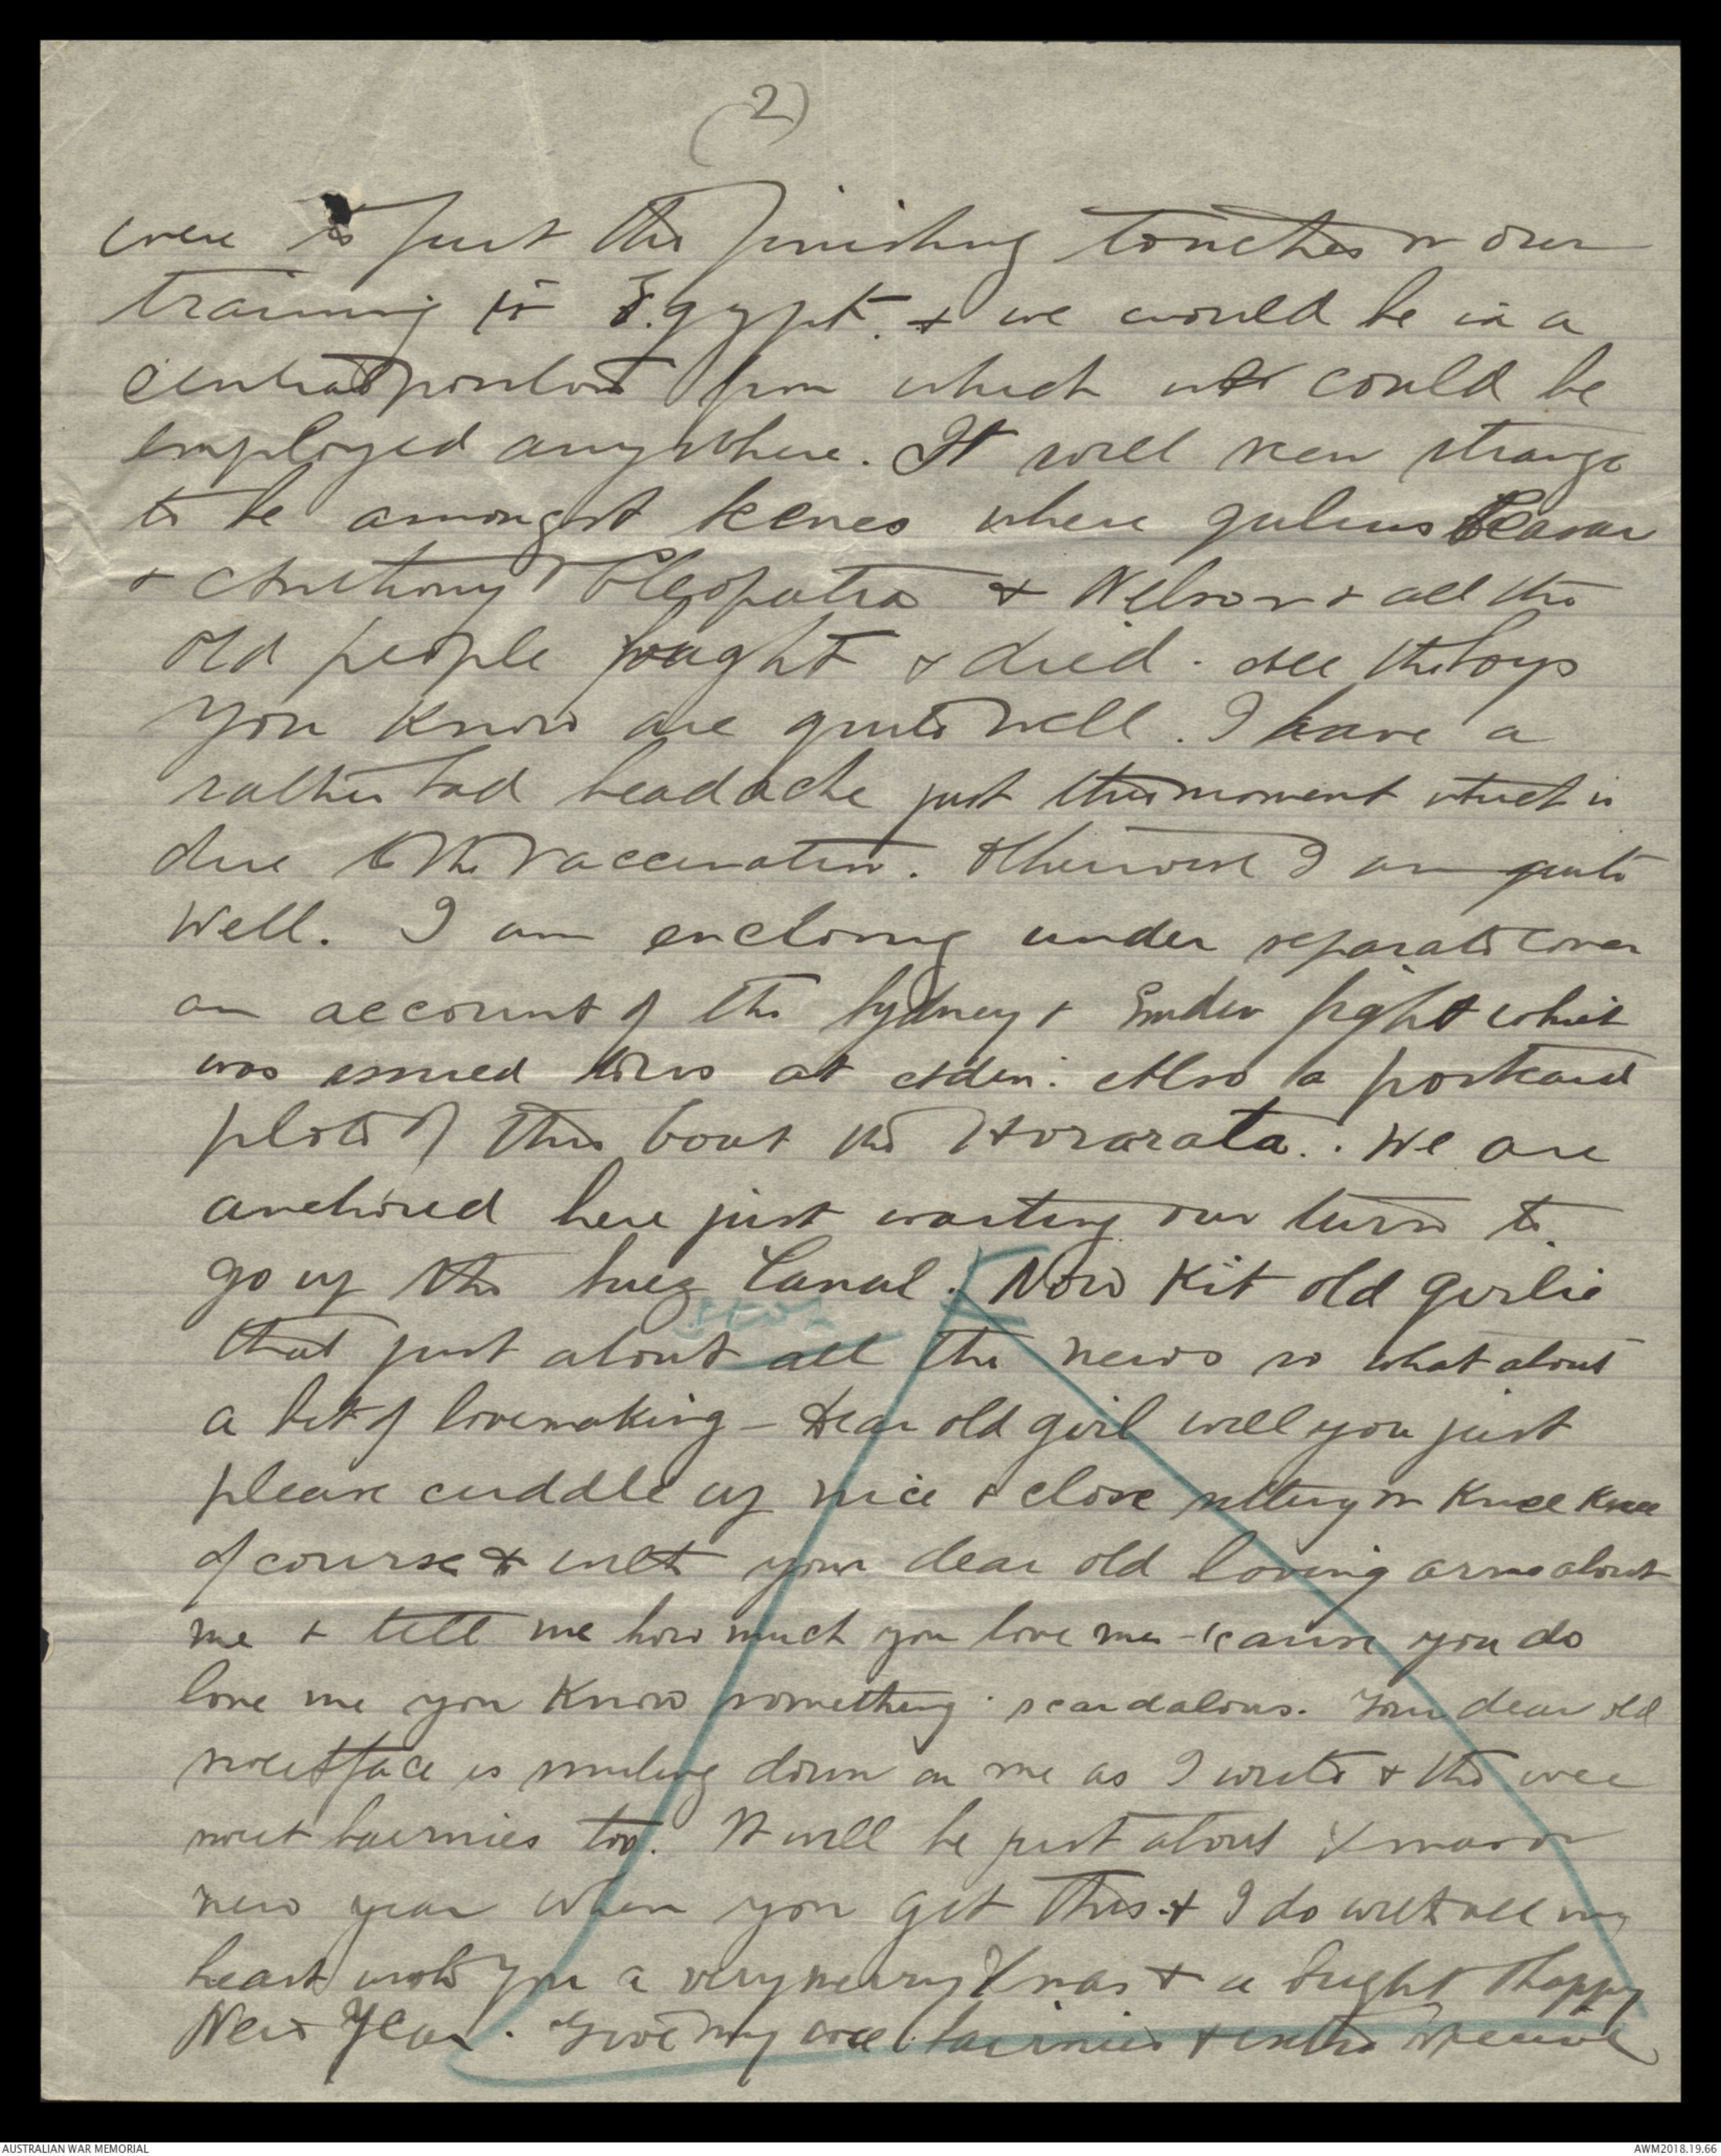 (2)
were to put the finishing touches on our
training in Egypt. & we would be in a
central position from which we could be
employed anywhere. It will seem strange
to be amongst scenes where Julius Ceasar
& Anthony & Cleopatra & Nelson & all the
old people fought & died. All the boys
you know are quite well. I have a
rather bad headache just this moment which is
due to the vaccination. Otherwise I am quite
well. I am enclosing under separate cover
an account of the Sydney & Emden fight which
was issued to us at Aden. Also a postcard
photo of this boat the Hororata. We are
anchored here just waiting our turn to
go up the Suez Canal. Now Kit old girlie
that just about all the news so what about
a bit of lovemaking - Dear old girl will you just
please cuddle up nice & close sitting on knee knee
of course & with your dear old loving arms about
me & tell me how much you love me - 'cause you do
love me you know something scandalous. Your dear old
sweet face is smiling down on me as I write & the wee
sweet bairnies too. It will be just about Xmas or
new year when you get this & I do with all my
heart wish you a very merry Xmas & a bright & happy
New Year. Give my wee bairnies & extra special
AUSTRALIAN WAR MEMORIAL
AWM2018.19.66